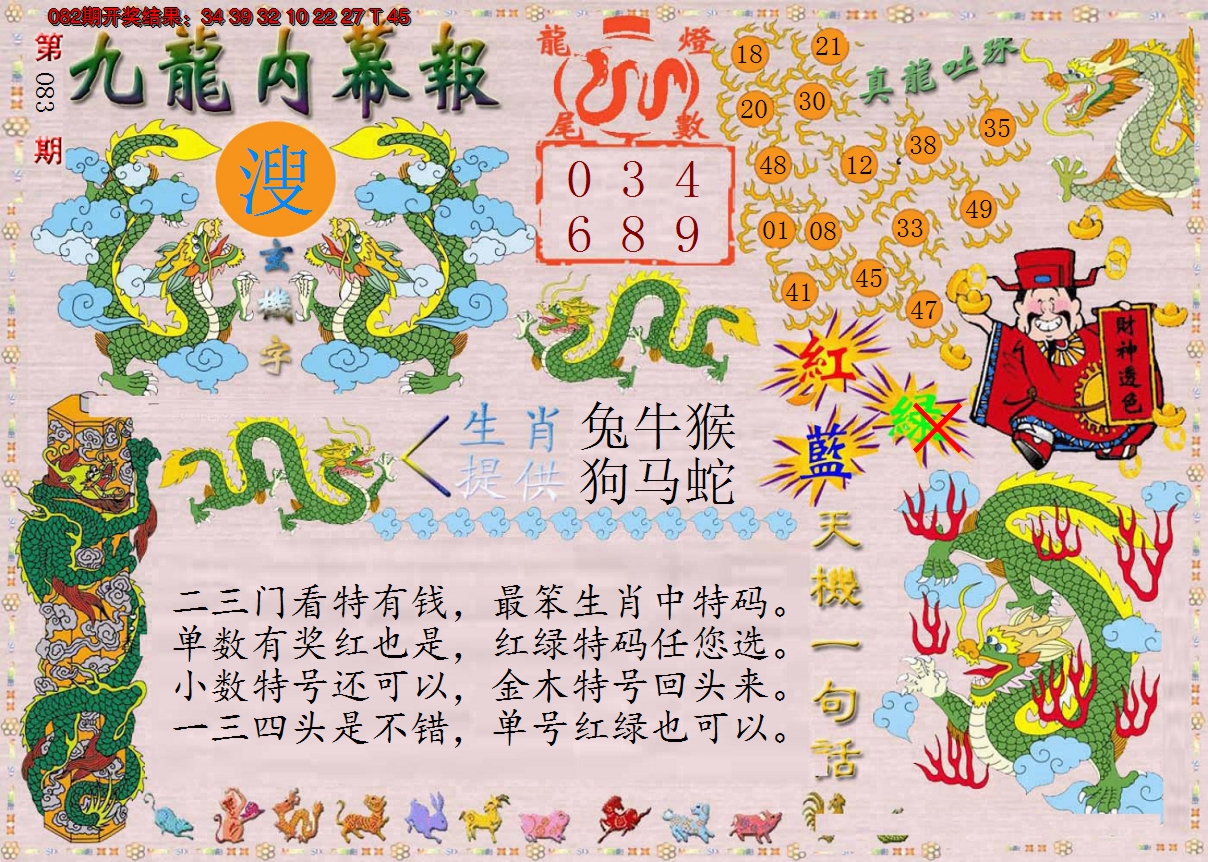 082期开奖结果：34 39 32 10 22 27 T 45
第083期
九龍内幕報
溲
玄機字
龍燈
尾數
0 3 4
6 8 9
真龍吐珠
18 21
20 30
48 12 38 35
01 08 33 49
41 45 47
財神透色
紅
綠
藍
生肖 兔牛猴
提供 狗马蛇
天機一句话
二三门看特有钱，最笨生肖中特码。
单数有奖红也是，红绿特码任您选。
小数特号还可以，金木特号回头来。
一三四头是不错，单号红绿也可以。